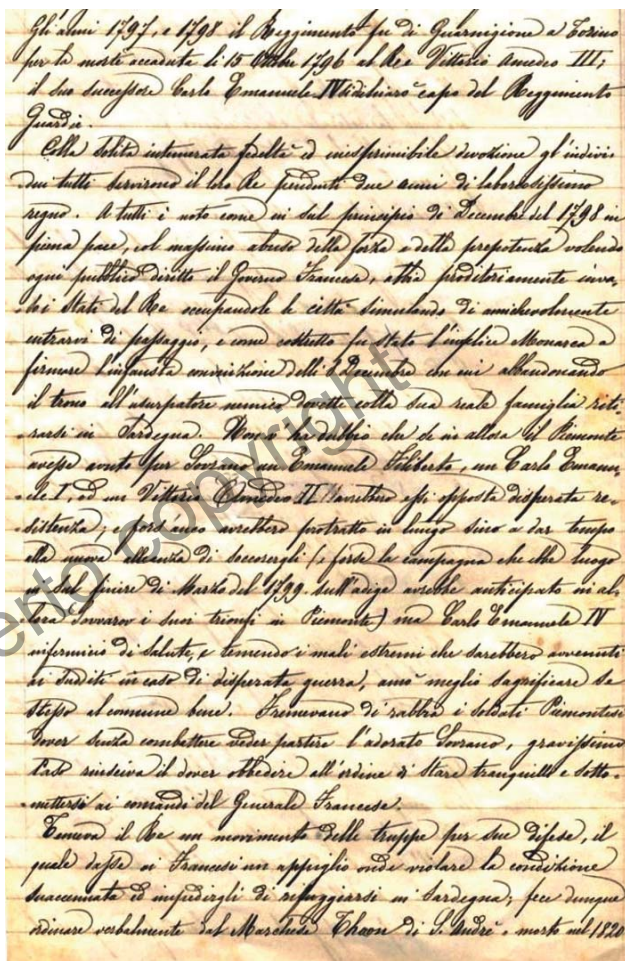 Gli anni 1797, e 1798 il Reggimento fu di Guarnigione a Torino
per la morte accaduta li 15 Ottobre 1796 al Re Vittorio Amedeo III;
il suo successore Carlo Emanuele IV si dichiarò capo del Reggimento
Guardie.
Colla solita intemerata fedeltà ed inesprimibile devozione gl'indivi-
dui tutti servirono il loro Re pendenti due anni di laboriosissimo
regno. A tutti è noto come in sul principio di Decembre del 1798 in
piena pace, col massimo abuso della forza e della prepotenza volendo
ogni pubblico diritto il Governo Francese, abbia proditoriamente inva-
so i Stati del Re occupandole le città simulando di amichevolmente
entrarvi di passaggio, e come costretto fu stato l'infelice Monarca a
firmare l'infausta convenzione delli 8 Decembre con cui abbandonando
il trono all'usurpatore nemico dovette colla sua reale famiglia riti-
rarsi in Sardegna. Non v'ha dubbio che se in allora il Piemonte
avesse avuto per Sovrano un Emanuele Filiberto, un Carlo Emanu-
ele I, od un Vittorio Amedeo II avrebbero essi opposta disperata re-
sistenza; e fors'anco avrebbero protratto in lungo sino a dar tempo
alla nuova alleanza di soccorergli (e forse la campagna che ebbe luogo
in sul finire di Marzo del 1799 sull'adige avrebbe anticipato in al-
lora Souvarov i suoi trionfi in Piemonte) ma Carlo Emanuele IV
infermiccio di salute, e temendo i mali estremi che sarebbero avvenuti
ai sudditi in caso di disperata guerra, amò meglio sagrificare se
stesso al comune bene. Fremevano di rabbia i soldati Piemontesi
dover senza combattere veder partire l'adorato Sovrano, gravissimo
caso riusciva il dover obbedire all'ordine di stare tranquilli e sotto-
mettersi ai comandi del Generale Francese.
Temeva il Re un movimento delle truppe per sue difese, il
quale dasse ai Francesi un appiglio onde violare la condizione
suaccennata ed impedirgli di rifuggiarsi in Sardegna; fece dunque
ordinare verbalmente dal Marchese Thaon di S. Andrè morto nel 1820
erto copyright